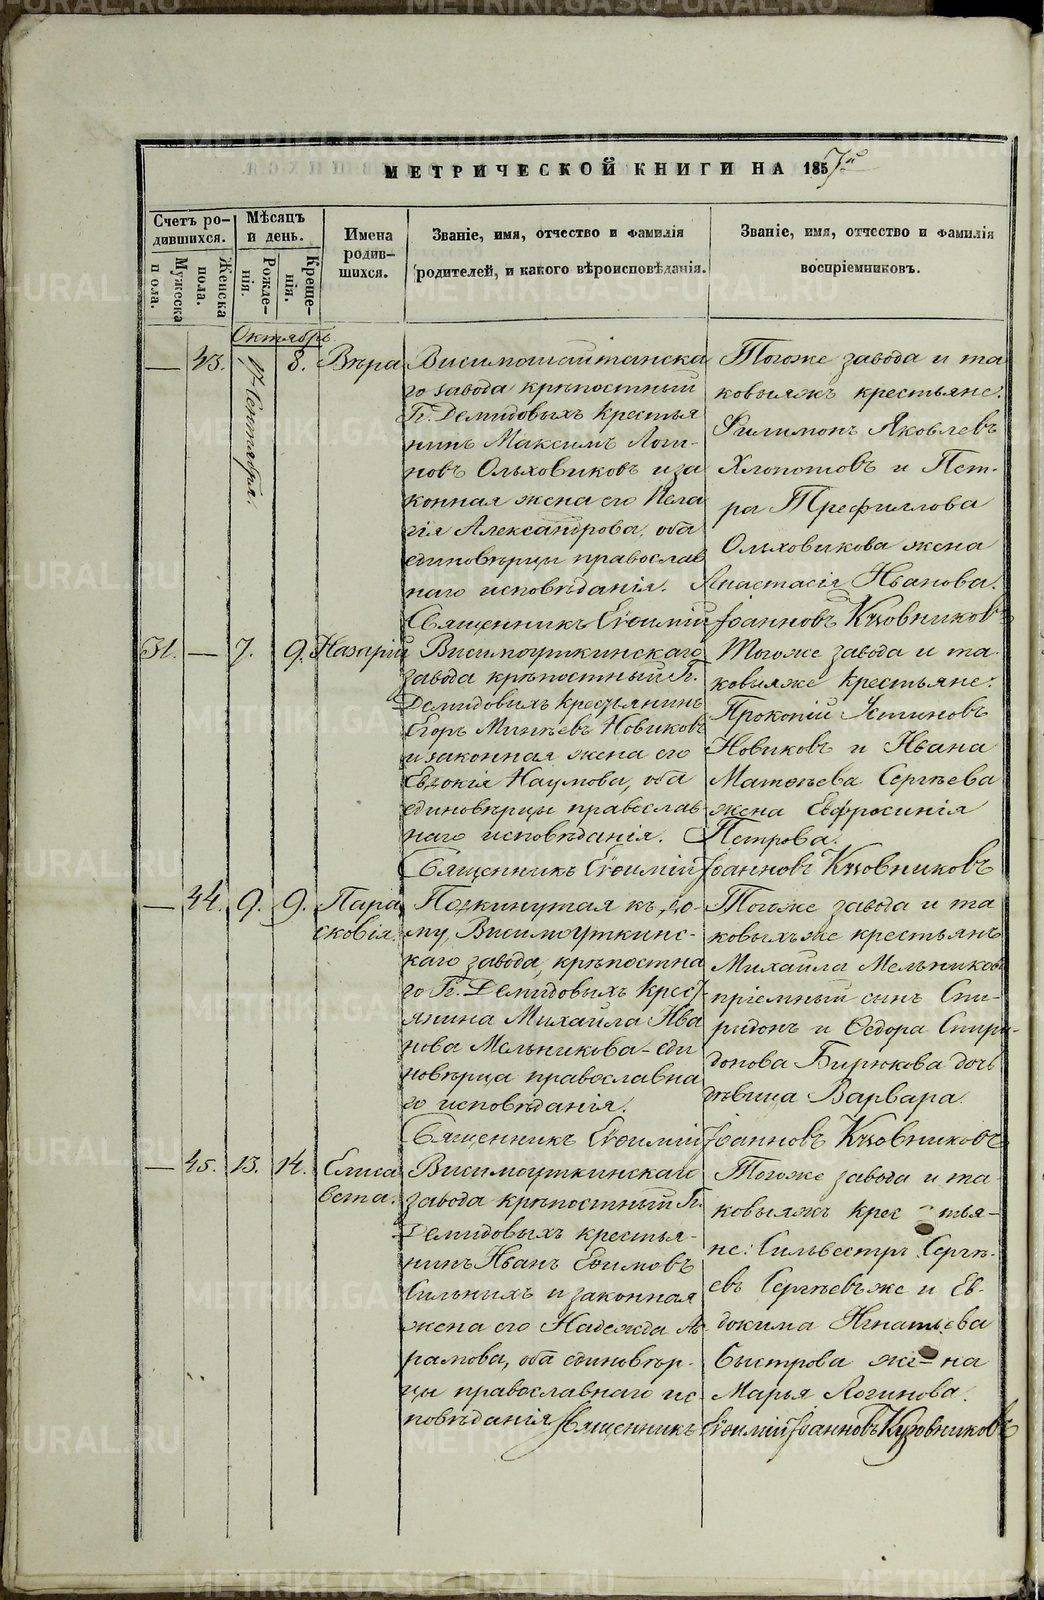 МЕТРИЧЕСКОЙ КНИГИ НА 1857й
Счетъ ро-
дившихся.
Мужеска
пола.
Женска
пола.
Мѣсяцъ
и день.
Рожде-
нія.
Креще-
нія.
Имена
родив-
шихся.
Званіе, имя, отчество и фамилія
родителей, и какого вѣроисповѣданія.
Званіе, имя, отчество и фамилія
воспріемниковъ.
Октябрь.
— 43. 17 Сентября. 8. Вѣра
Висимошайтанска
го завода крѣпостный
Гг. Демидовыхъ крестья
нинъ Максимъ Логи-
новъ Ольховиковъ и за
конная жена его Пела
гія Александрова, оба
единовѣрцы православ
наго исповѣданія.
Тогоже завода и та
ковыяжъ крестьяне:
Филимонъ Яковлевъ
Хлопотовъ и Пет-
ра Трефиллова
Ольховикова жена
Анастасія Иванова.
Священникъ Евѳимій Іоанновъ Кузовниковъ
31. — 7. 9. Назарій
Висимоуткинскаго
завода крѣпостный Гг.
Демидовыхъ крестьянинъ
Егоръ Минѣевъ Новиковъ
и законная жена его
Евдокія Наумова, оба
единовѣрцы православ-
наго исповѣданія.
Тогоже завода и та-
ковыяже крестьяне:
Прокопій Устиновъ
Новиковъ и Ивана
Матвѣева Сергѣева
жена Евфросинія
Петрова.
Священникъ Евѳимій Іоанновъ Кузовниковъ
— 44. 9. 9. Пара
сковія.
Подкинутая къ до-
му, Висимоуткинс-
каго завода, крѣпостна
го Гг. Демидовыхъ крест-
янина Михаила Ива
нова Мельникова - еди
новѣрца православна
го исповѣданія.
Тогоже завода и та
ковыхъже крестьянъ
Михаила Мельникова
пріемный сынъ Спи-
ридонъ и Ѳедора Спири-
донова Бирюкова дочь
дѣвица Варвара.
Священникъ Евѳимій Іоанновъ Кузовниковъ
— 45. 13. 14. Елиса
вета.
Висимоуткинскаго
завода крѣпостный Гг.
Демидовыхъ крестья-
нинъ Иванъ Евѳимовъ
Сильныхъ и законная
жена его Надежда Ав
рамова, оба единовѣр-
цы православнаго ис-
повѣданія.
Тогоже завода и та-
ковыяжъ крес тья-
не: Сильвестръ Сергѣ-
евъ Сергѣевъже и Ев-
докима Игнатьева
Быстрова же-на
Марья Логинова.
Священникъ Евѳимій Іоанновъ Кузовниковъ
METRIKI.GASO-URAL.RU